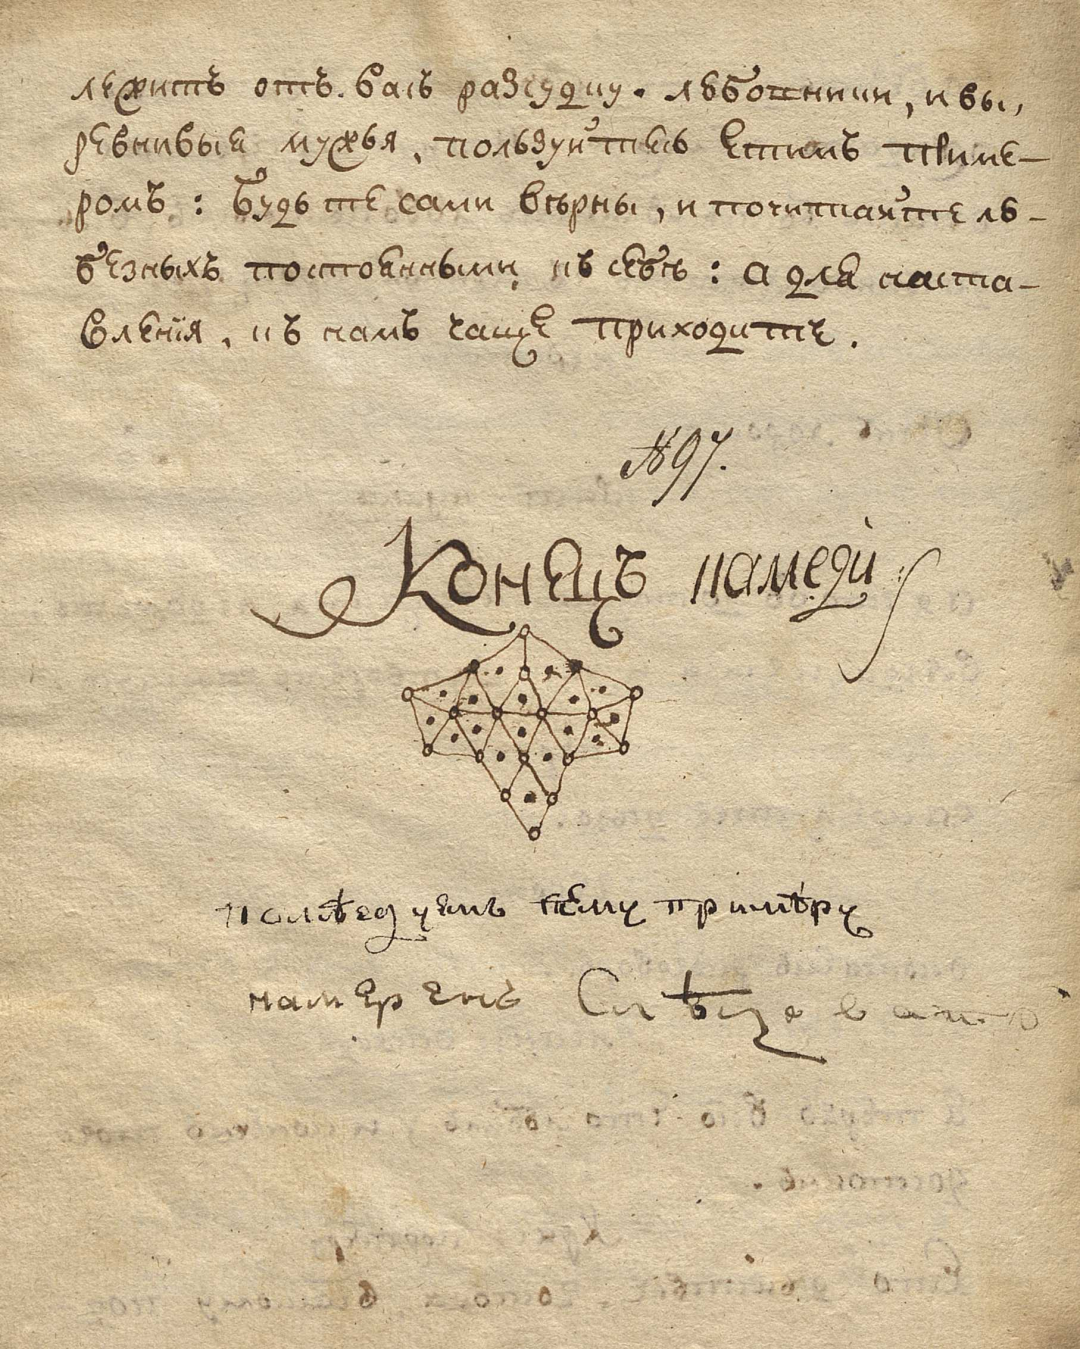 лежитъ отъ васъ разсудку. любовники, и вы,
ревнивые мужья, пользуйтесь етимъ приме-
ромъ: будьте сами вѣрны, и почитайте лю-
безныхъ постоянными къ себѣ: а для наста-
вленія, къ намъ чаще приходите.
№97.
Конецъ камеди
сему примѣру
намеренъ